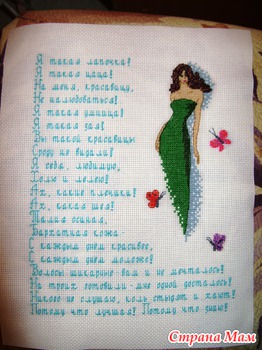 Я такая лапочка!
Я такая цаца!
На меня, красавицу,
Не налюбоваться!
Я такая умница!
Я такая зая!
Вы такой красавицы
Сроду не видали!
Я себя, любимую,
Холю и лелею!
Ах, какие плечики!
Ах, какая шея!
Талия осиная,
Бархатная кожа-
С каждым днем красивее,
С каждым днем моложе!
Волосы шикарные-вам и не мечталось!
На троих готовили-мне одной досталось!
Никого не слушаю, коль стыдят и хают!
Потому что лучшая! Потому что знаю!
Страна Мам